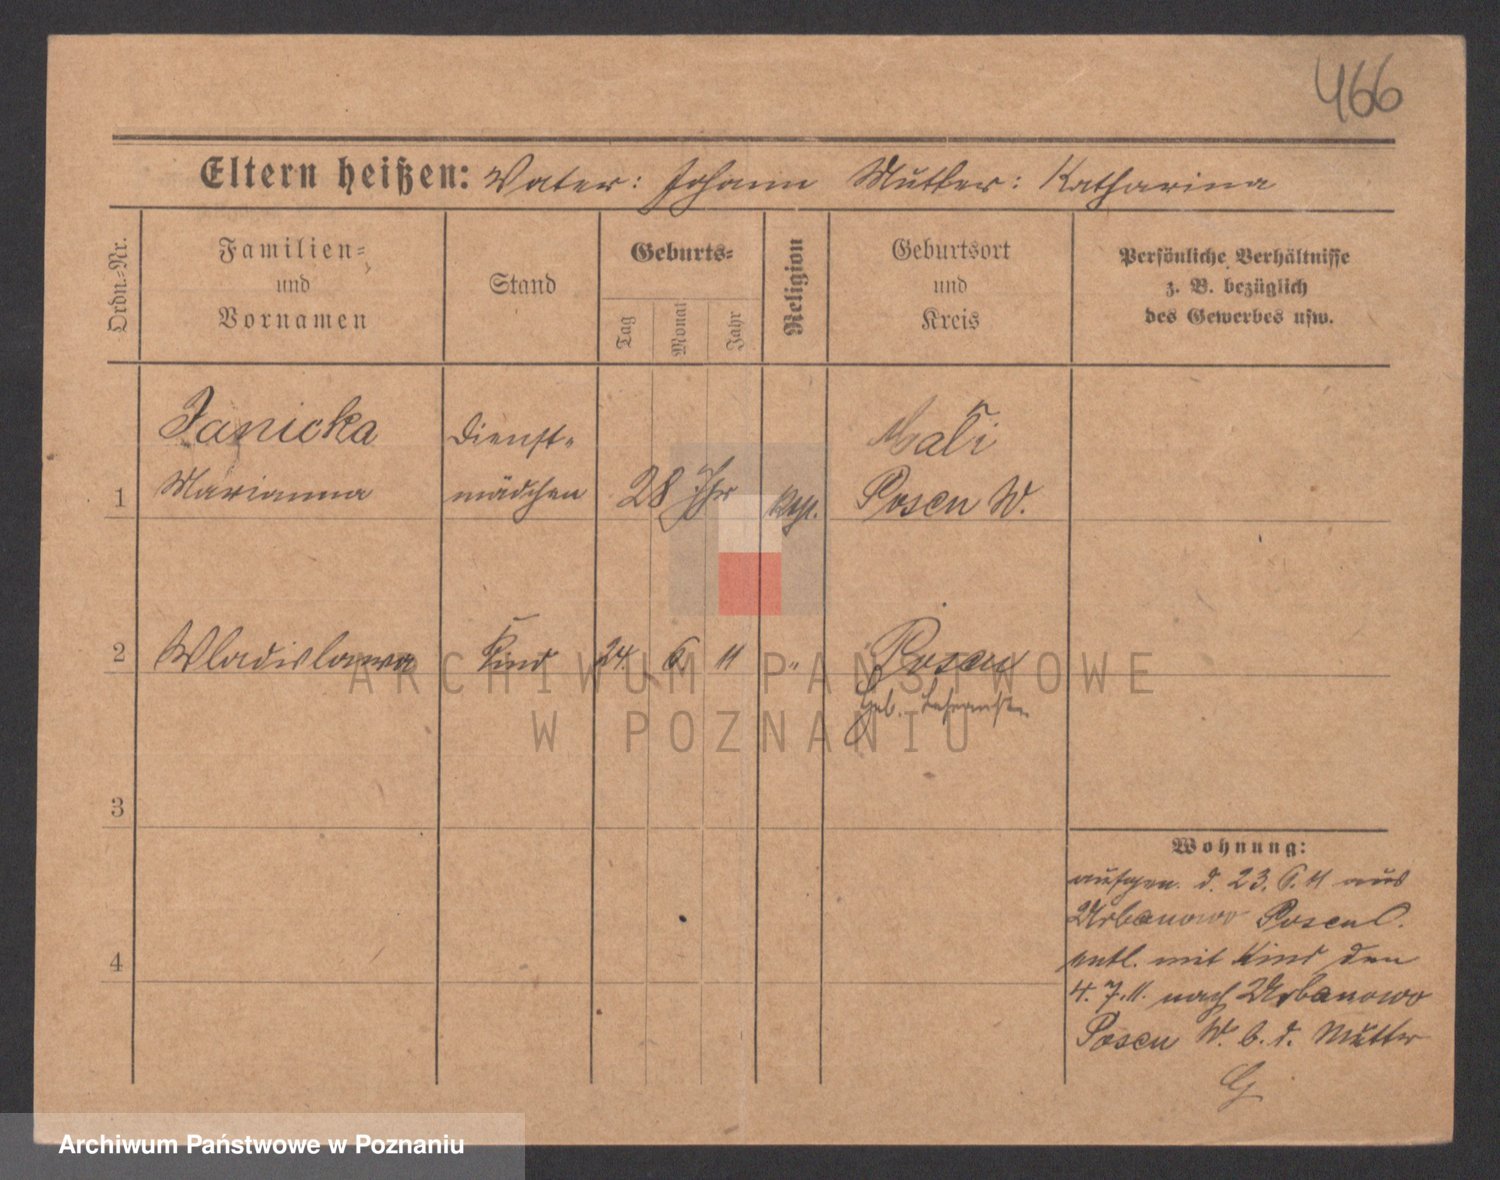 466
Eltern heißen: Vater: Johann Mutter: Katharina
Ordn.-Nr.
Familien-
und
Vornamen
Stand
Geburts-
Tag
Monat
Jahr
Religion
Geburtsort
und
Kreis
Persönliche Verhältnisse
z. B. bezüglich
des Gewerbes usw.
Janicka
Marianna
1
Dienst-
mädchen
28 Jhr
kath.
Posen W.
2
Wladislawa
Kind
24. 6. 11
"
Posen
Geb.
3
4
Wohnung:
aufgen. d. 23. 6. 11 aus
Urbanowo Posen O.
entl. mit Kind den
4. 7. 11. nach Urbanowo
Posen W. b. d. Mutter
ARCHIWUM PAŃSTWOWE
W POZNANIU
Archiwum Państwowe w Poznaniu